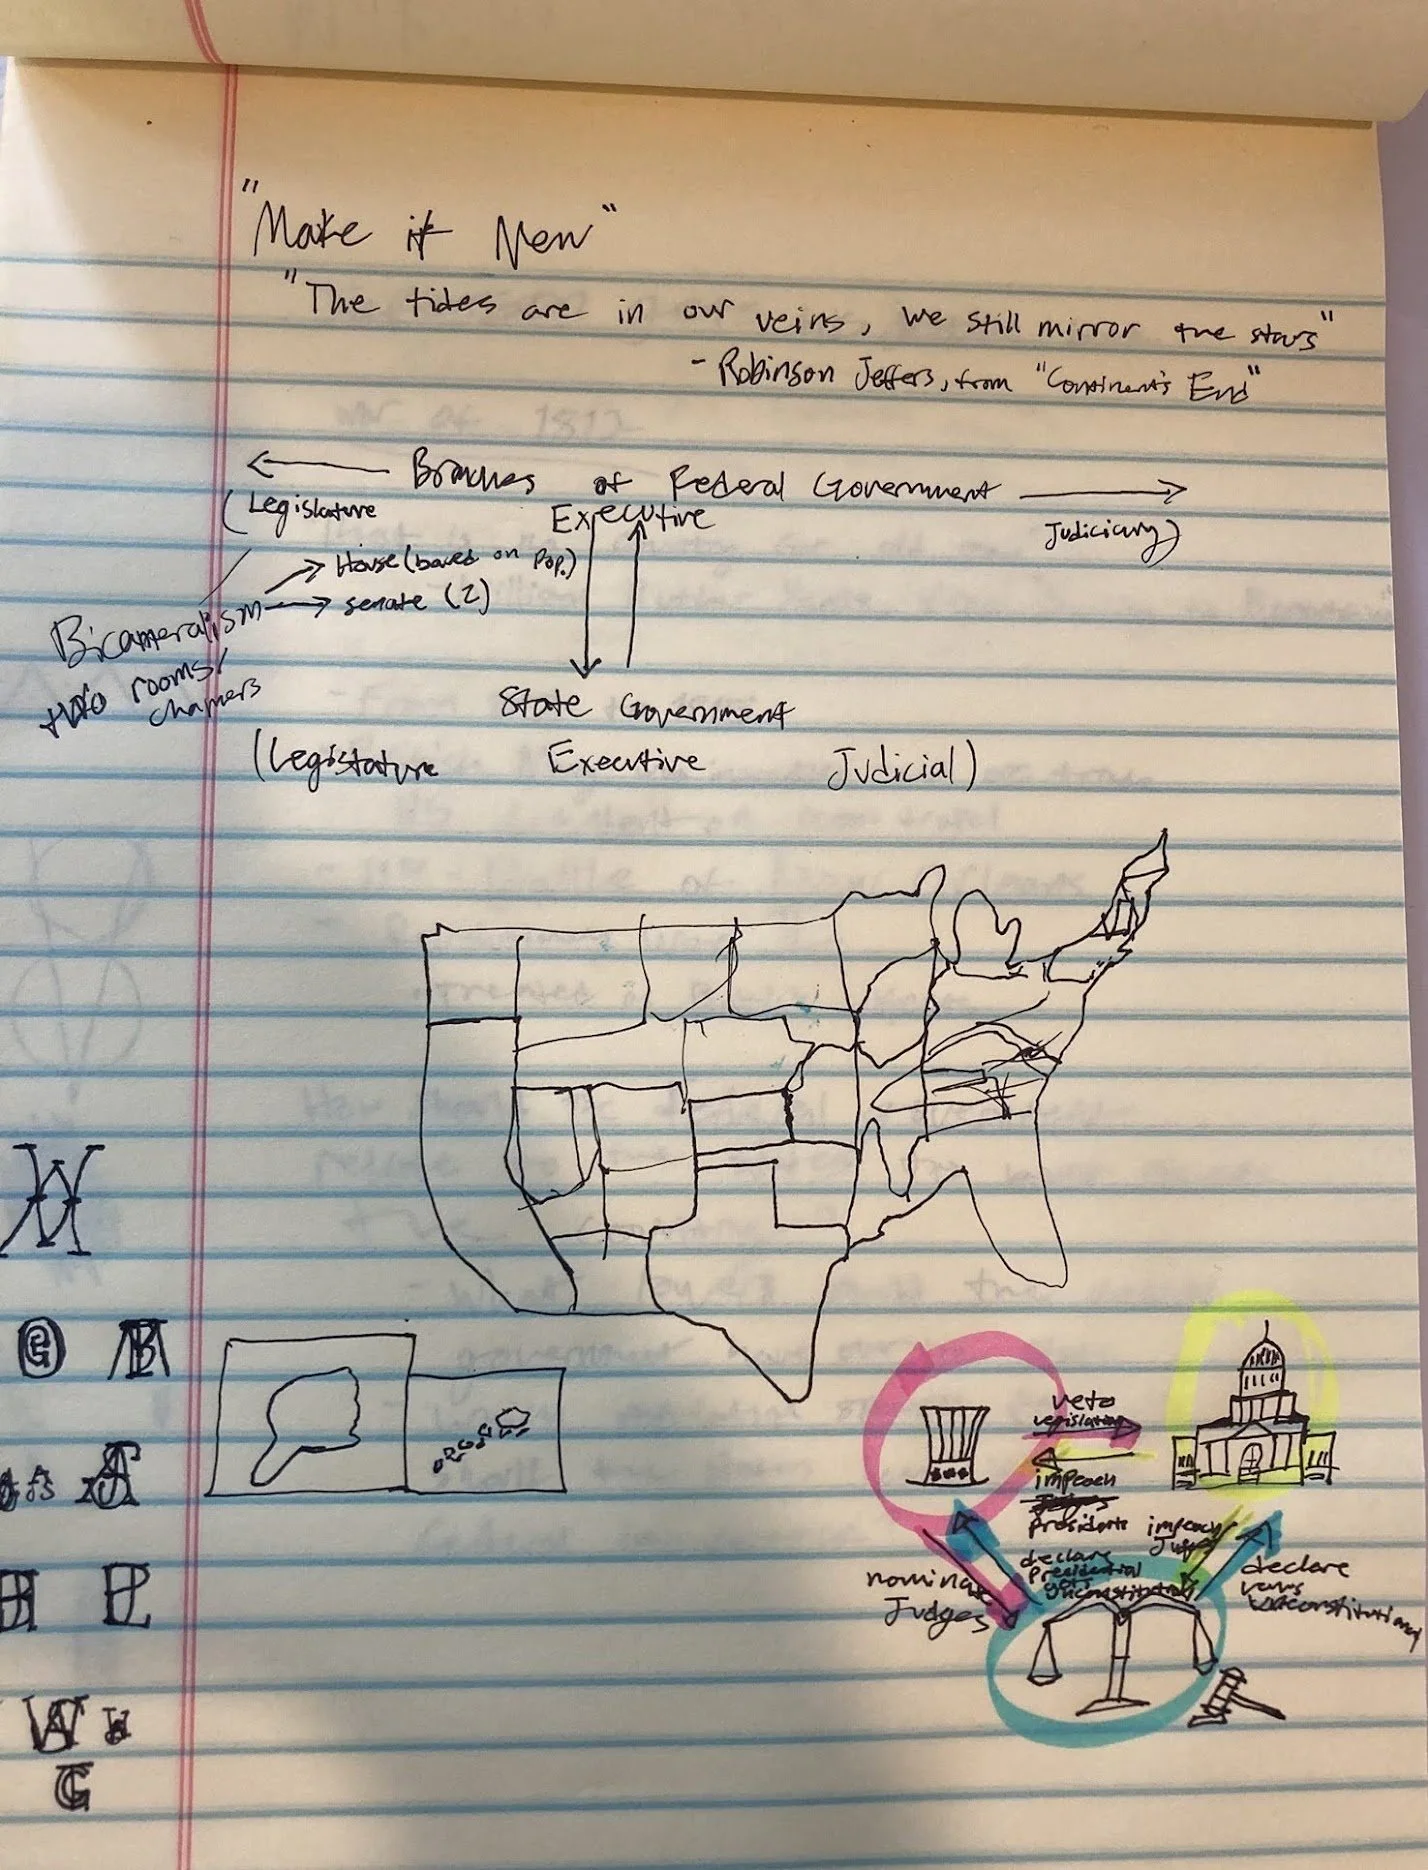 "Make it New"
"The tides are in our veins, we still mirror the stars"
- Robinson Jeffers, from "Continent's End"
Branches of Federal Government
(Legislature Executive Judiciary)
House (based on Pop.)
senate (2)
Bicameralism
two rooms/
chambers
State Government
(Legislature Executive Judicial)
veto
legislation
impeach
presidents
impeach
Judges
declare
Presidential
unconstitutional
nominate
Judges
declare
unconstitutional